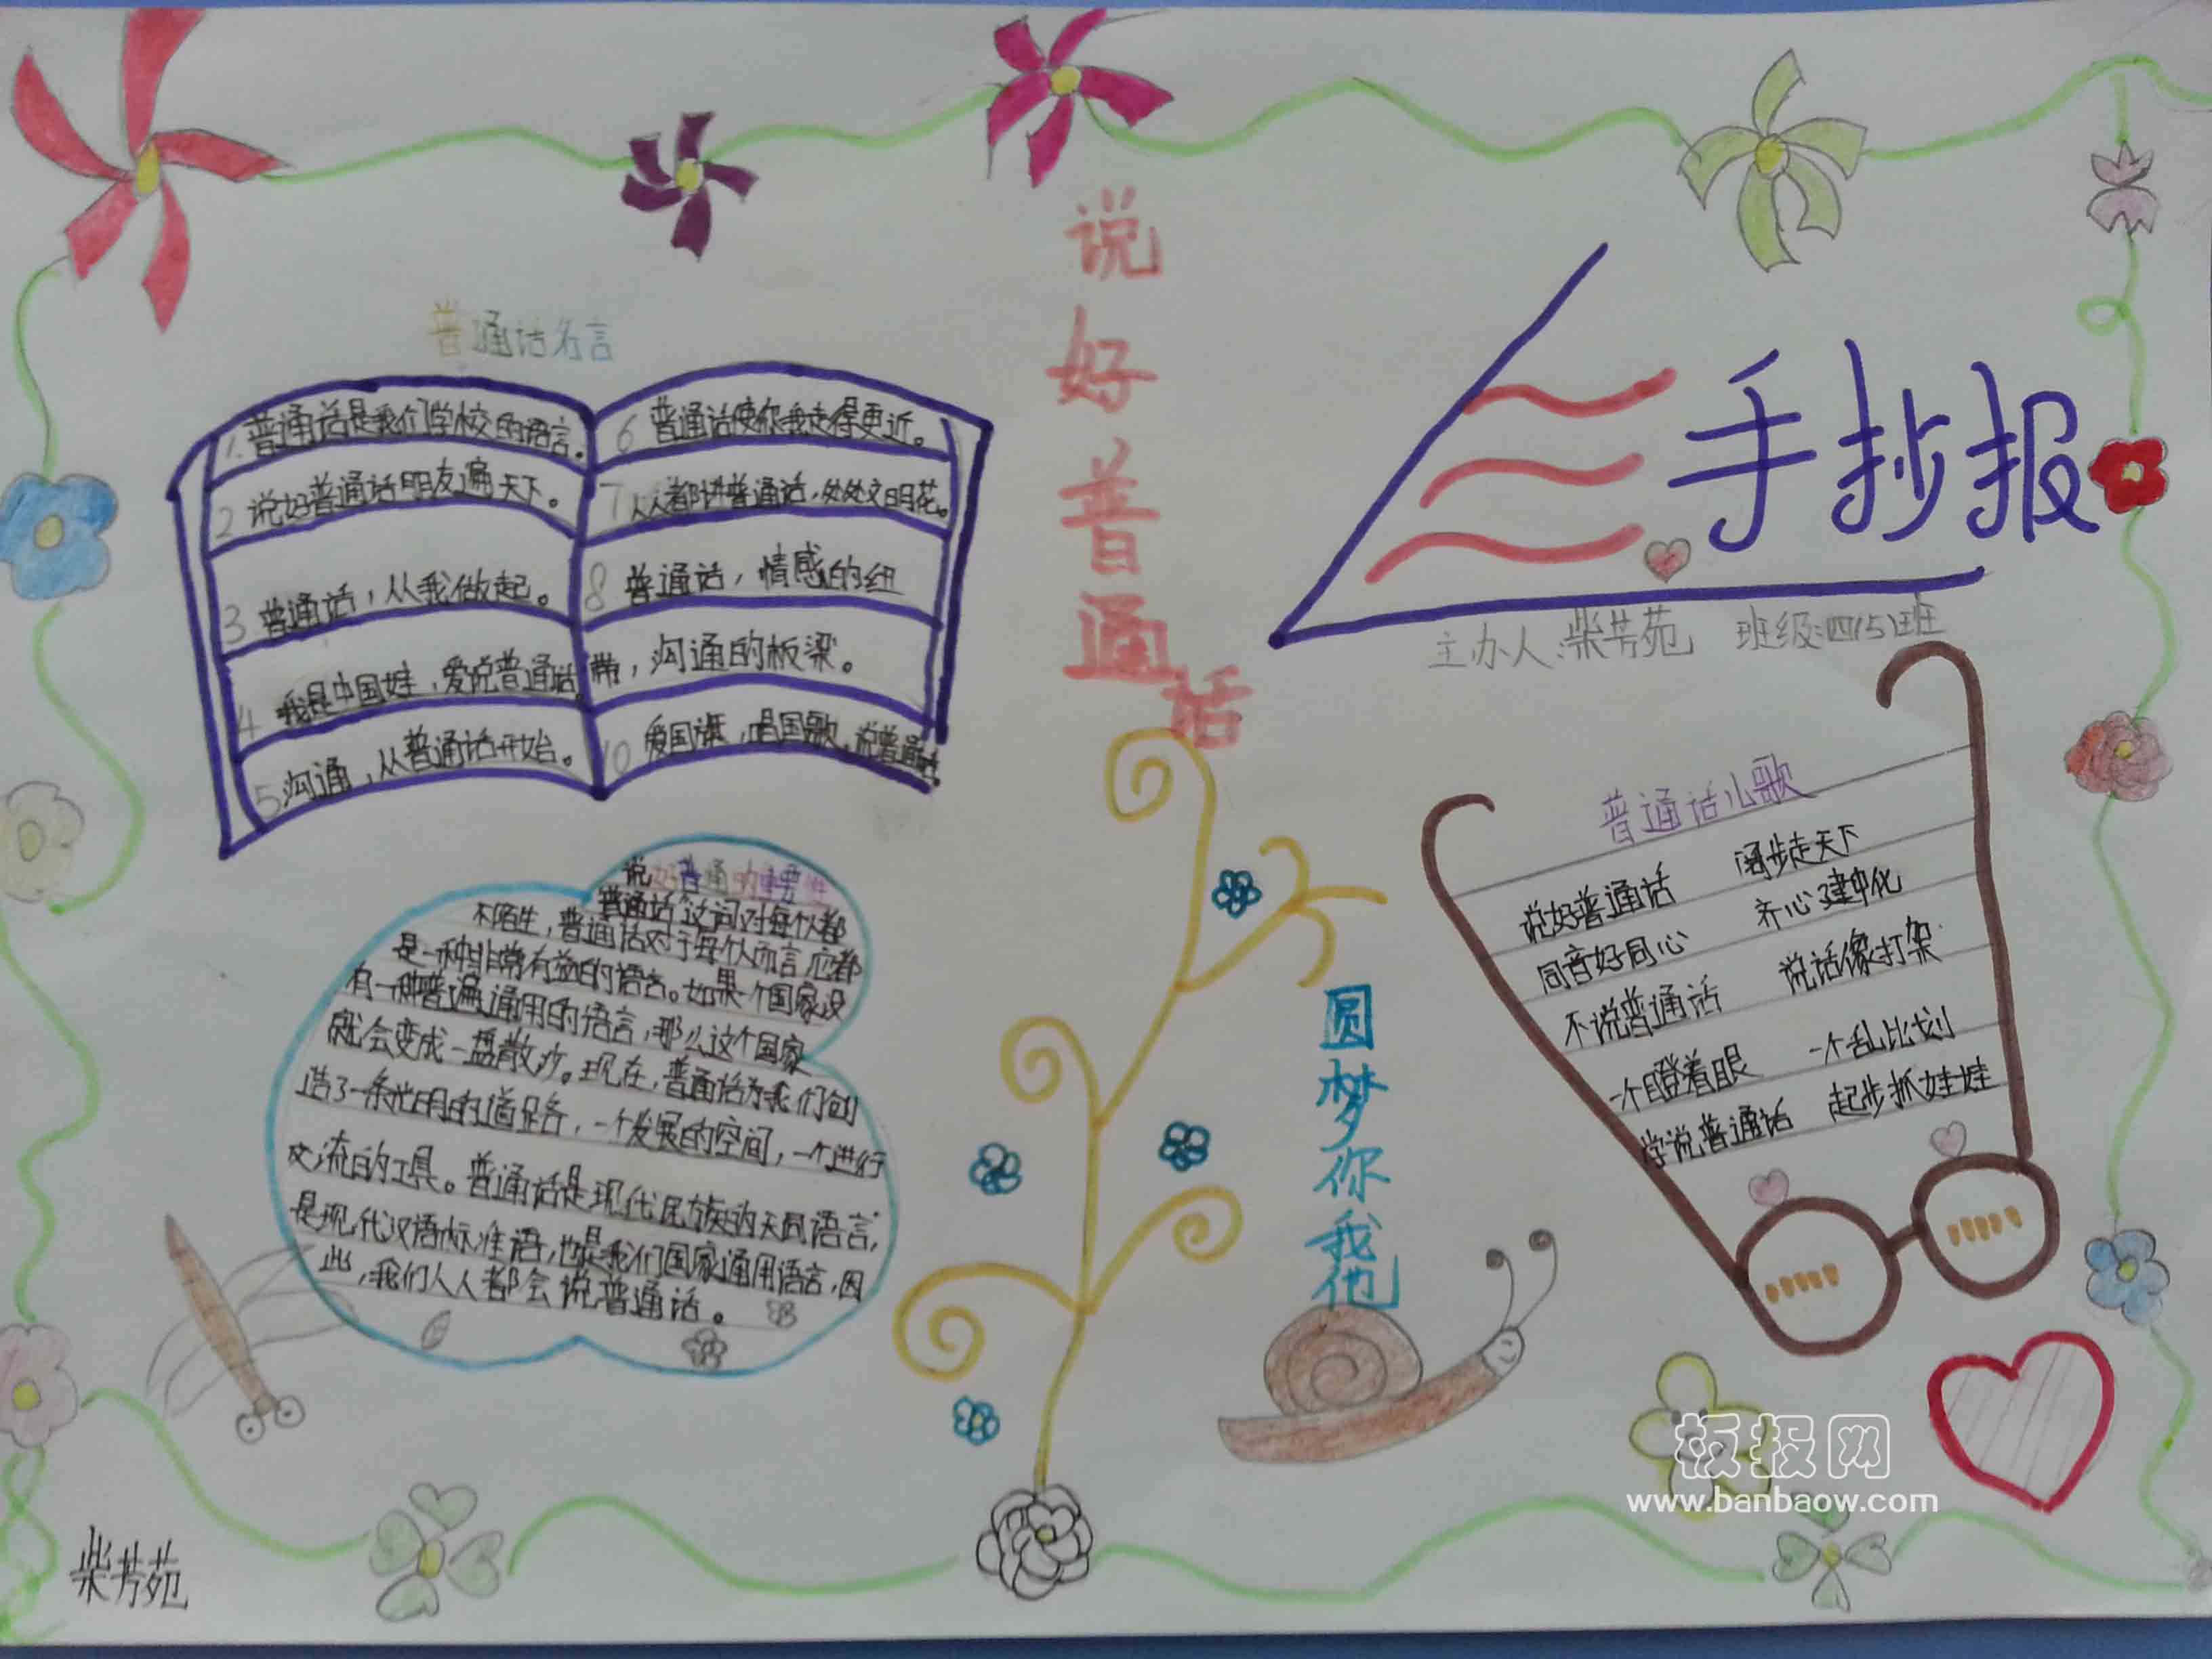 说好普通话
手抄报
主办人:柴芳苑 班级:四(5)班
普通话名言
1. 普通话是我们学校的语言。
2 说好普通话朋友遍天下。
3 普通话，从我做起。
4 我是中国娃，爱说普通话
5 沟通，从普通话开始。
6 普通话使你我走得更近。
7 人人都讲普通话，处处文明花。
8 普通话，情感的纽
带，沟通的板梁。
10 爱国旗，唱国歌，说普通话
说好普通的重要性
普通话这词对每个人都
不陌生，普通话对于每个人而言，应都
是一种非常有益的语言。如果一个国家没
有一种普遍通用的语言，那么这个国家
就会变成一盘散沙。现在，普通话为我们创
造了一条光明的道路，一个发展的空间，一个进行
交流的工具。普通话是现代民族的天同语言，
是现代汉语标准语，也是我们国家通用语言，因
此，我们人人都会说普通话。
圆梦你我他
普通话儿歌
说好普通话 阔步走天下
同音好同心 齐心建中化
不说普通话 说话像打架
一个瞪着眼 一个乱比划
学说普通话 起步抓娃娃
柴芳苑
板报网
www.banbaow.com